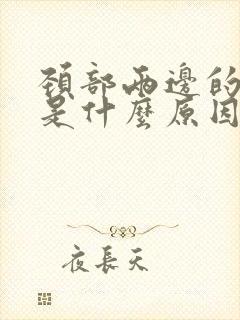 頸部兩邊的
是什麼原因
夜長天